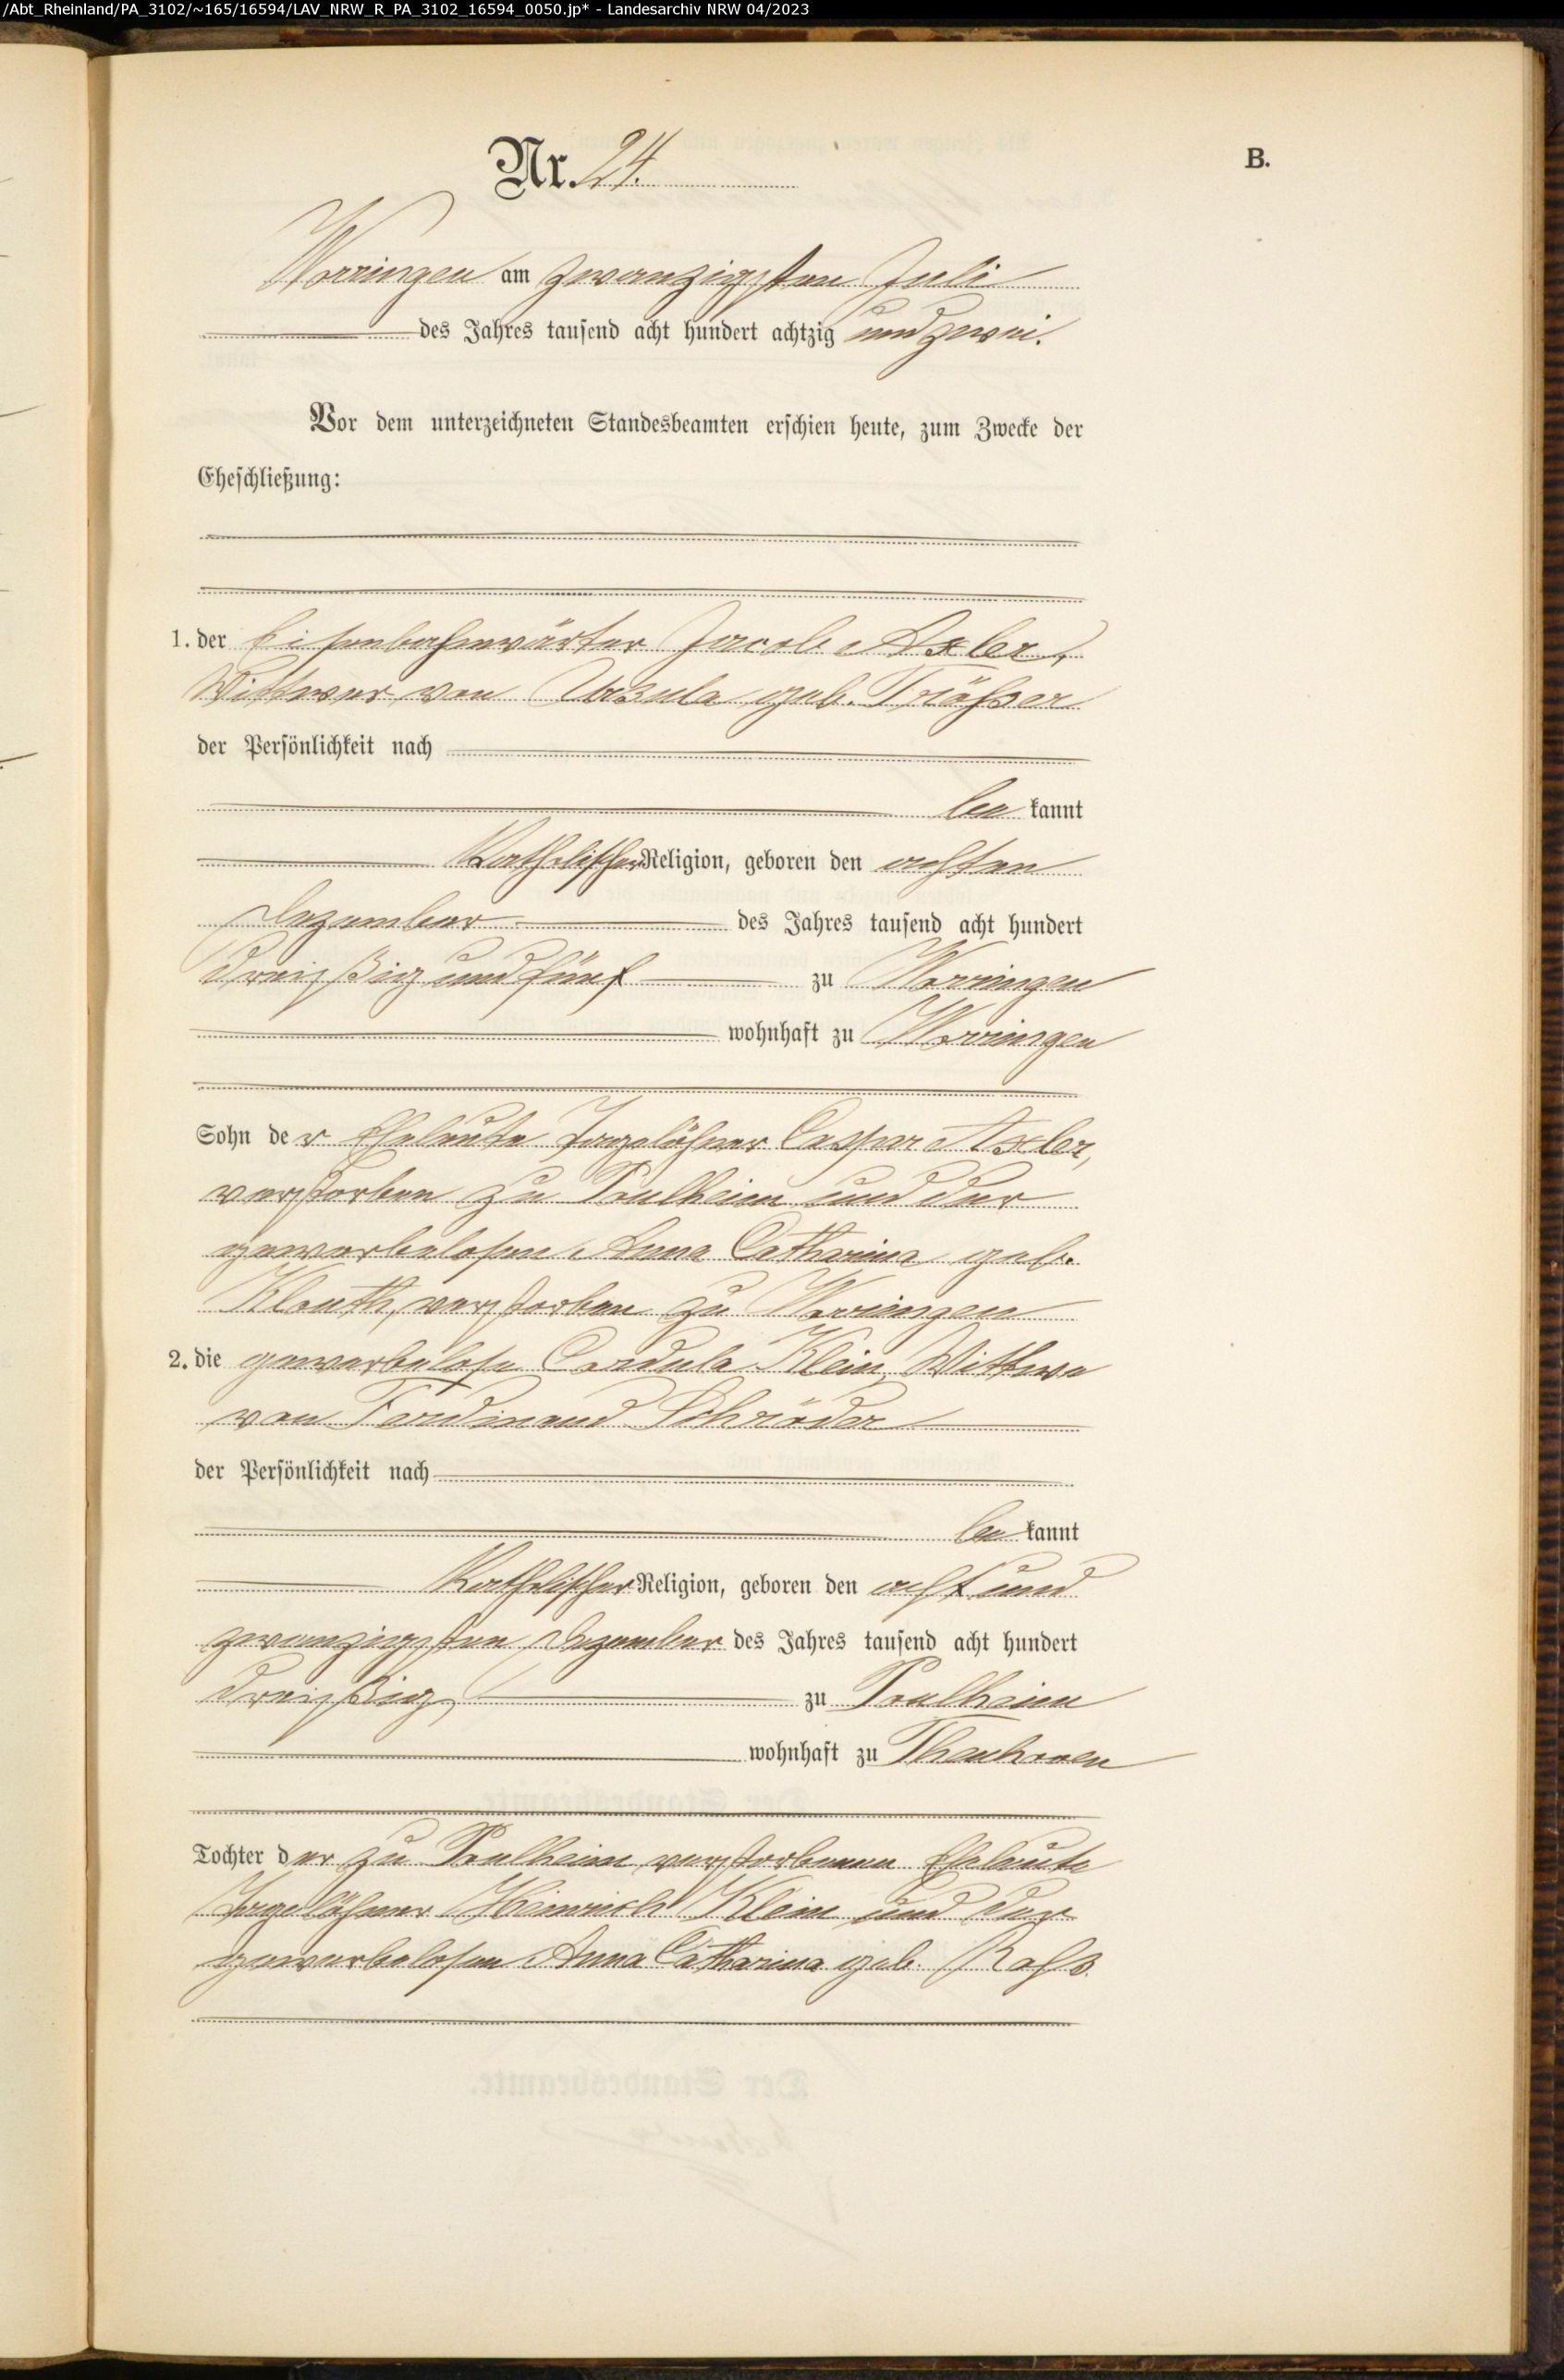 /Abt_Rheinland/PA_3102/~165/16594/LAV_NRW_R_PA_3102_16594_0050.jp* - Landesarchiv NRW 04/2023
B.
Nr. 24.
Worringen am zwanzigsten Juli
des Jahres tausend acht hundert achtzig und zwei.
Vor dem unterzeichneten Standesbeamten erschien heute, zum Zwecke der
Eheschließung:
1. der Eisenbahnwärter Jacob Axler,
Wittwer von Ursula geb. Tröhser
der Persönlichkeit nach
be kannt
Katholischer Religion, geboren den achten
Dezember des Jahres tausend acht hundert
dreißig und fünf zu Worringen
wohnhaft zu Worringen
Sohn der Eheleute Tagelöhner Caspar Axler,
verstorben zu Pulheim und der
gewerbelosen Anna Catharina geb.
Klouth, verstorben zu Worringen
2. die gewerbelose Cordula Klein, Wittwe
von Ferdinand Schröder
der Persönlichkeit nach
be kannt
Katholischer Religion, geboren den acht und
zwanzigsten Dezember des Jahres tausend acht hundert
dreißig, zu Pulheim
wohnhaft zu Thenhoven
Tochter der zu Pulheim verstorbenen Eheleute
Tagelöhner Heinrich Klein und der
gewerbelosen Anna Catharina geb.
Der Standesbeamte.